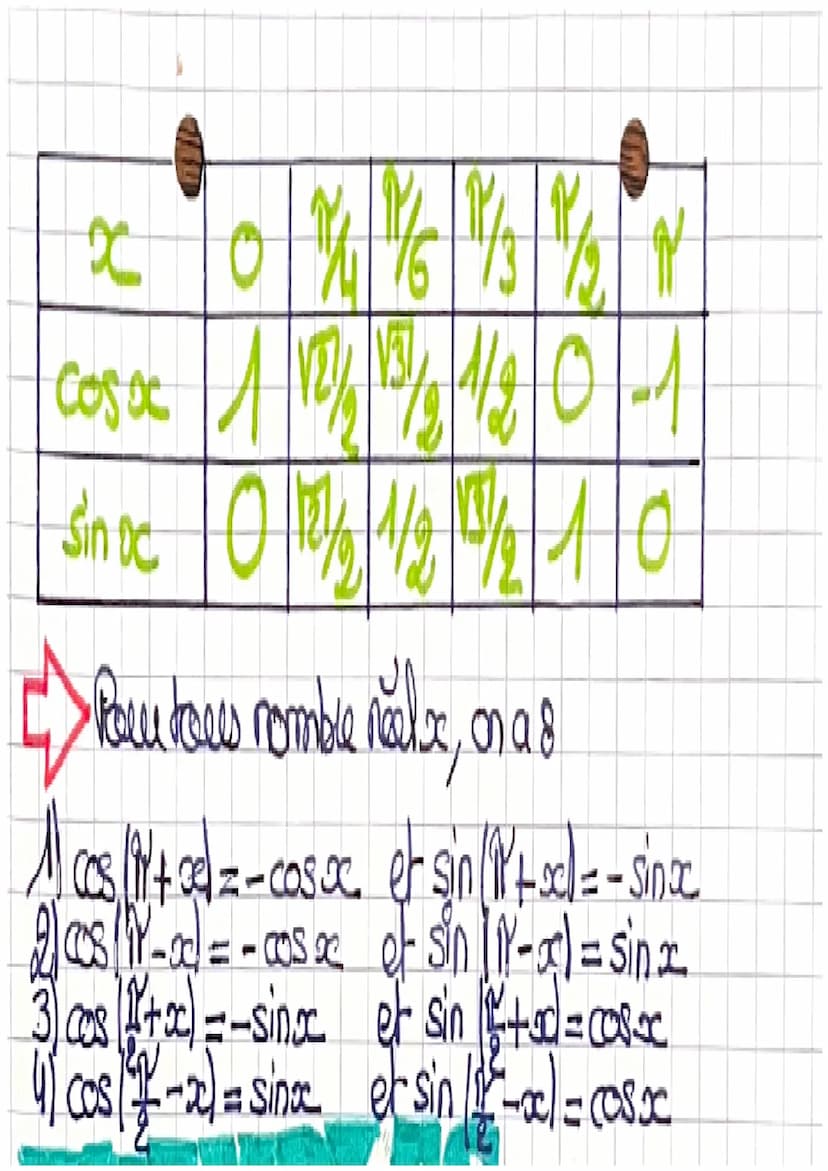 x 0 π/4 π/6 π/3 π/2 π
cos x 1 √2/2 √3/2 1/2 0 -1
sin x 0 √2/2 1/2 √3/2 1 0
Pour tous nombre réel x, on a :
1) cos(π+x)=-cos x et sin(π+x)=-sin x
2) cos(π-x)=-cos x et sin(π-x)=sin x
3) cos(π/2+x)=-sin x et sin(π/2+x)=cos x
4) cos(π/2-x)=sin x et sin(π/2-x)=cos x